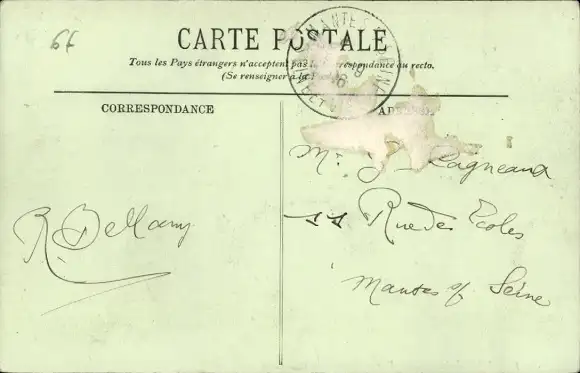 6f
CARTE POSTALE
Tous les Pays étrangers n'acceptent pas la correspondance au recto.
(Se renseigner à la
CORRESPONDANCE
MANTES
Mr J. Ragneaux
11 Rue des Ecoles
Mantes s/ Seine
R. Dellamy